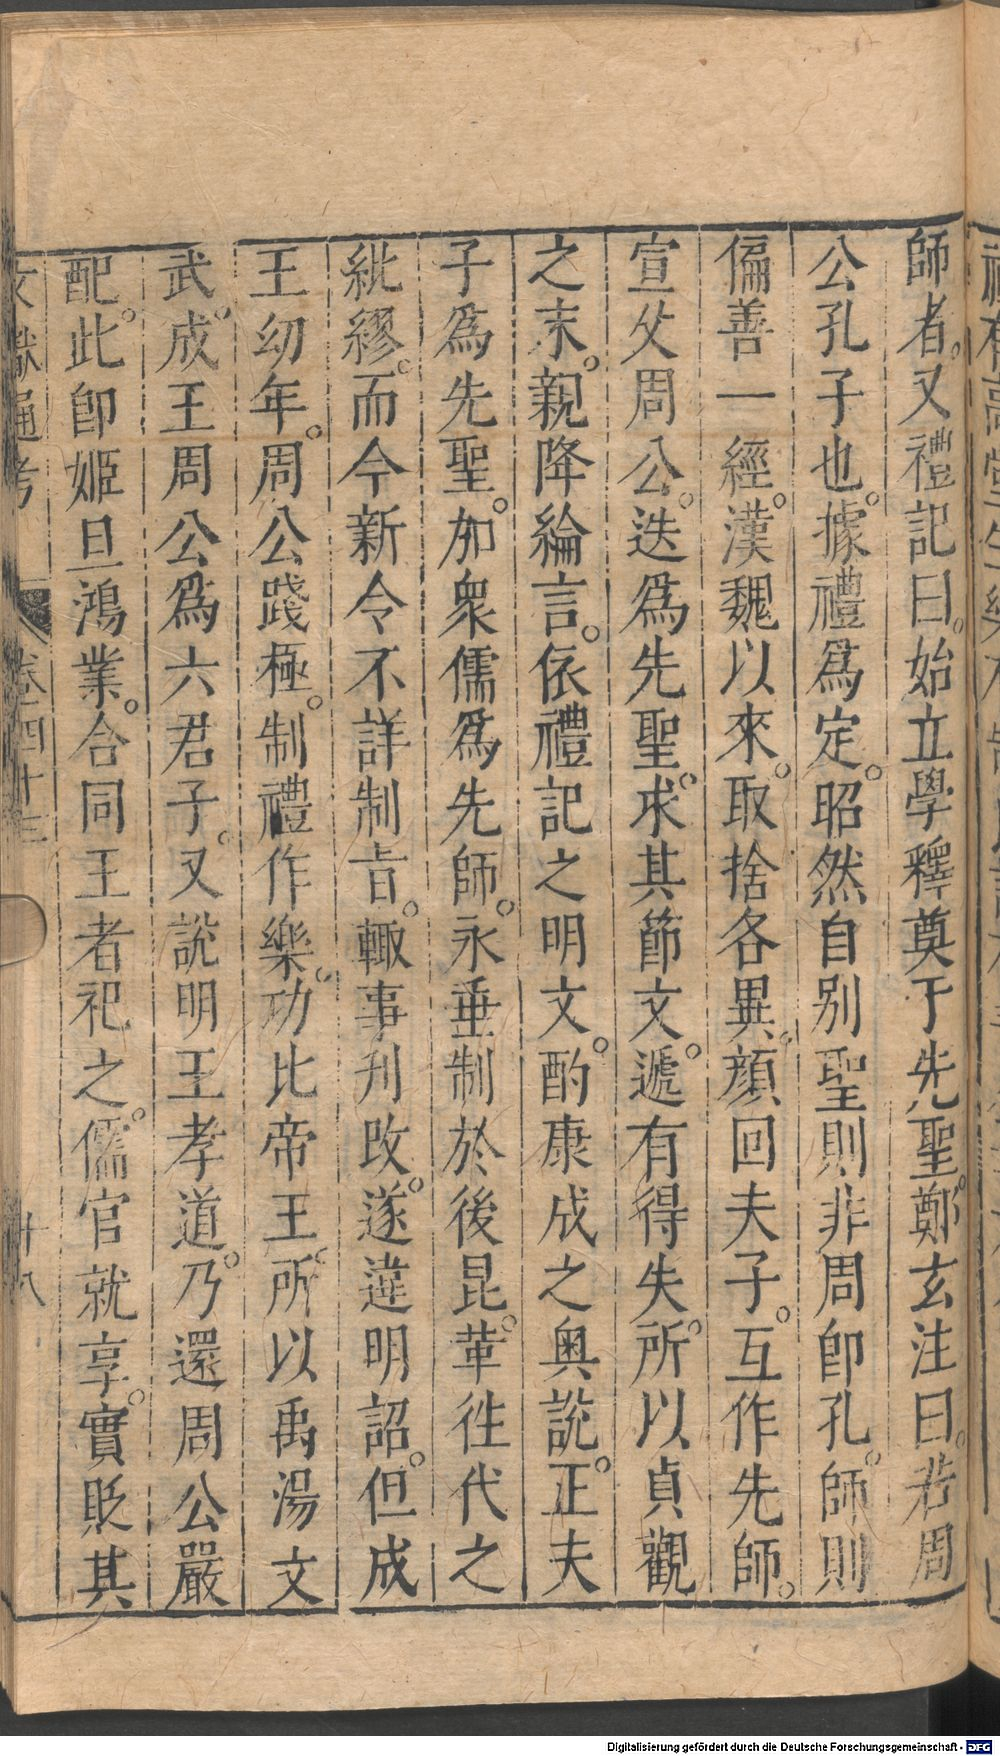 師者。又禮記曰。始立學釋奠于先聖。鄭玄注曰。若周
公孔子也。據禮爲定。昭然自別聖則非周卽孔。師則
偏善一經。漢魏以來。取捨各異。顏回夫子。互作先師。
宣父周公。迭爲先聖。求其節文。遞有得失。所以貞觀
之末。親降綸言。依禮記之明文。酌康成之奧說。正夫
子爲先聖。加衆儒爲先師。永垂制於後昆。革往代之
紕繆。而今新令不詳制旨。輙事刋改。遂違明詔。但成
王幼年。周公踐極。制禮作樂。功比帝王。所以禹湯文
武。成王周公爲六君子。又說明王孝道。乃還周公嚴
配。此卽姬旦鴻業。合同王者祀之。儒官就享。實貶其
文獻通考 卷四十三 十八
Digitalisierung gefördert durch die Deutsche Forschungsgemeinschaft - DFG